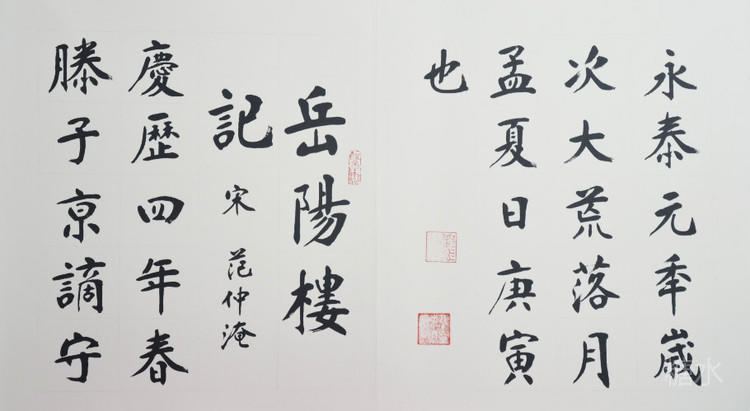 永泰元秊歲
次大荒落月
孟夏日庚寅
也
岳陽樓
記 宋 范仲淹
慶歷四年春
滕子京謫守